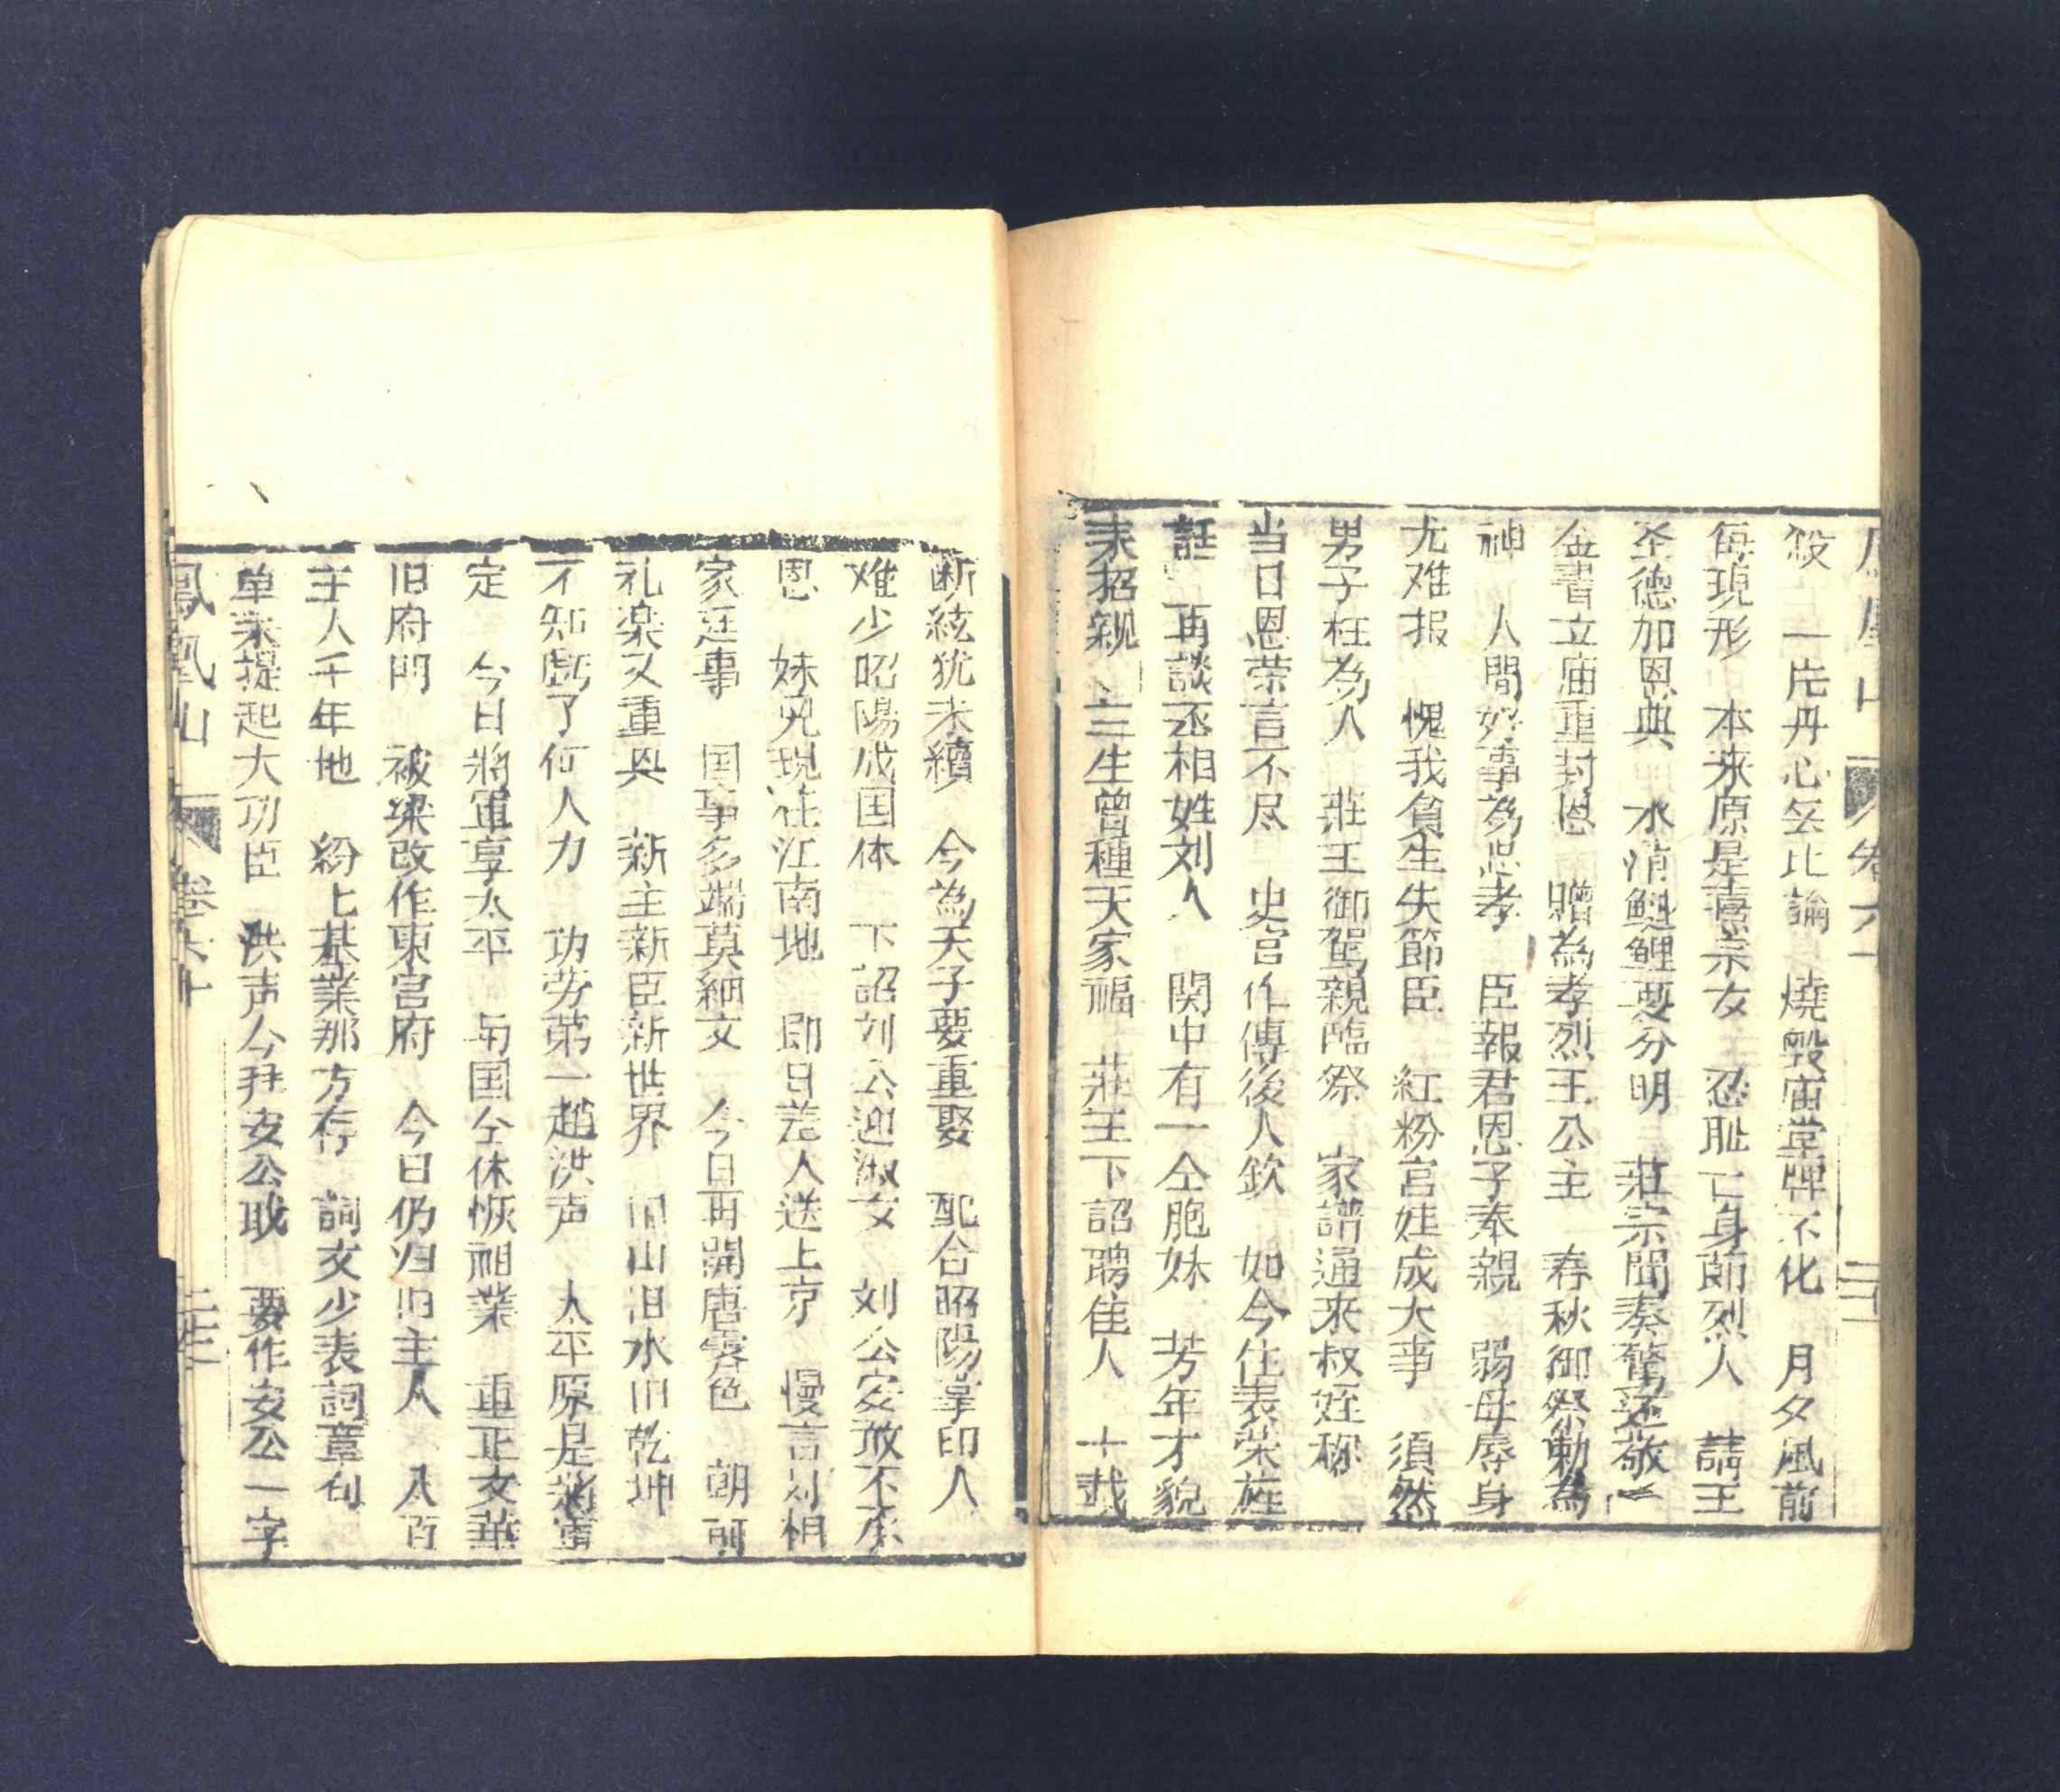 鳳凰山 卷六
殁 一片丹心無比論 燒毀庙堂牌不化 月夕風前
每現形 本来原是熹宗女 忍耻亡身節烈人 請王
圣德加恩典 水清鰱鯉要分明 莊宗聞奏驚还敬
金書立庙重封恩 贈為孝烈王公主 春秋御祭勅為
神 人間好事為忠孝 臣報君恩子奉親 弱母辱身
尤难报 愧我貪生失節臣 紅粉宫娃成大事 須然
男子枉為人 莊王御駕親臨祭 家譜通来叔姪稱
当日恩荣言不尽 史官作傳後人欽 如今住表荣旌
話 再談丞相姓刘人 関中有一仝胞妹 芳年才貌
未招親 三生曾種天家福 莊王下詔聘佳人 十載
断絃犹未續 今為天子要重娶 配合昭陽掌印人
难少昭陽成国体 下詔刘公迎淑女 刘公安敢不承
恩 妹兄現在江南地 即日差人送上京 慢言刘相
家廷事 国事多端莫細文 今日再開唐雰色 朝前
礼楽又重興 新主新臣新世界 旧山旧水旧乾坤
不知虧了何人力 功劳第一趙洪声 太平原是将軍
定 今日將軍享太平 与国仝休恢祖業 重正文華
旧府門 被梁改作東宫府 今日仍归旧主人 八百
主人千年地 紛上基業那方存 詞文少表詞章句
单来提起大功臣 洪声今拜安公职 要作安公一字
鳳凰山 卷六十